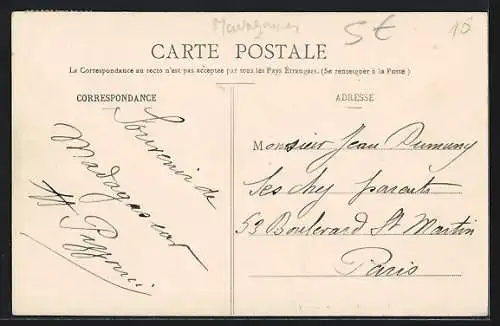 Madagascar
5€
10
CARTE POSTALE
La Correspondance au recto n'est pas acceptée par tous les Pays Étrangers. (Se renseigner à la Poste)
CORRESPONDANCE
Souvenir de
Madagascar
ADRESSE
Monsieur Jean Dumuny
Ses chy parents
53 Boulevard St Martin
Paris